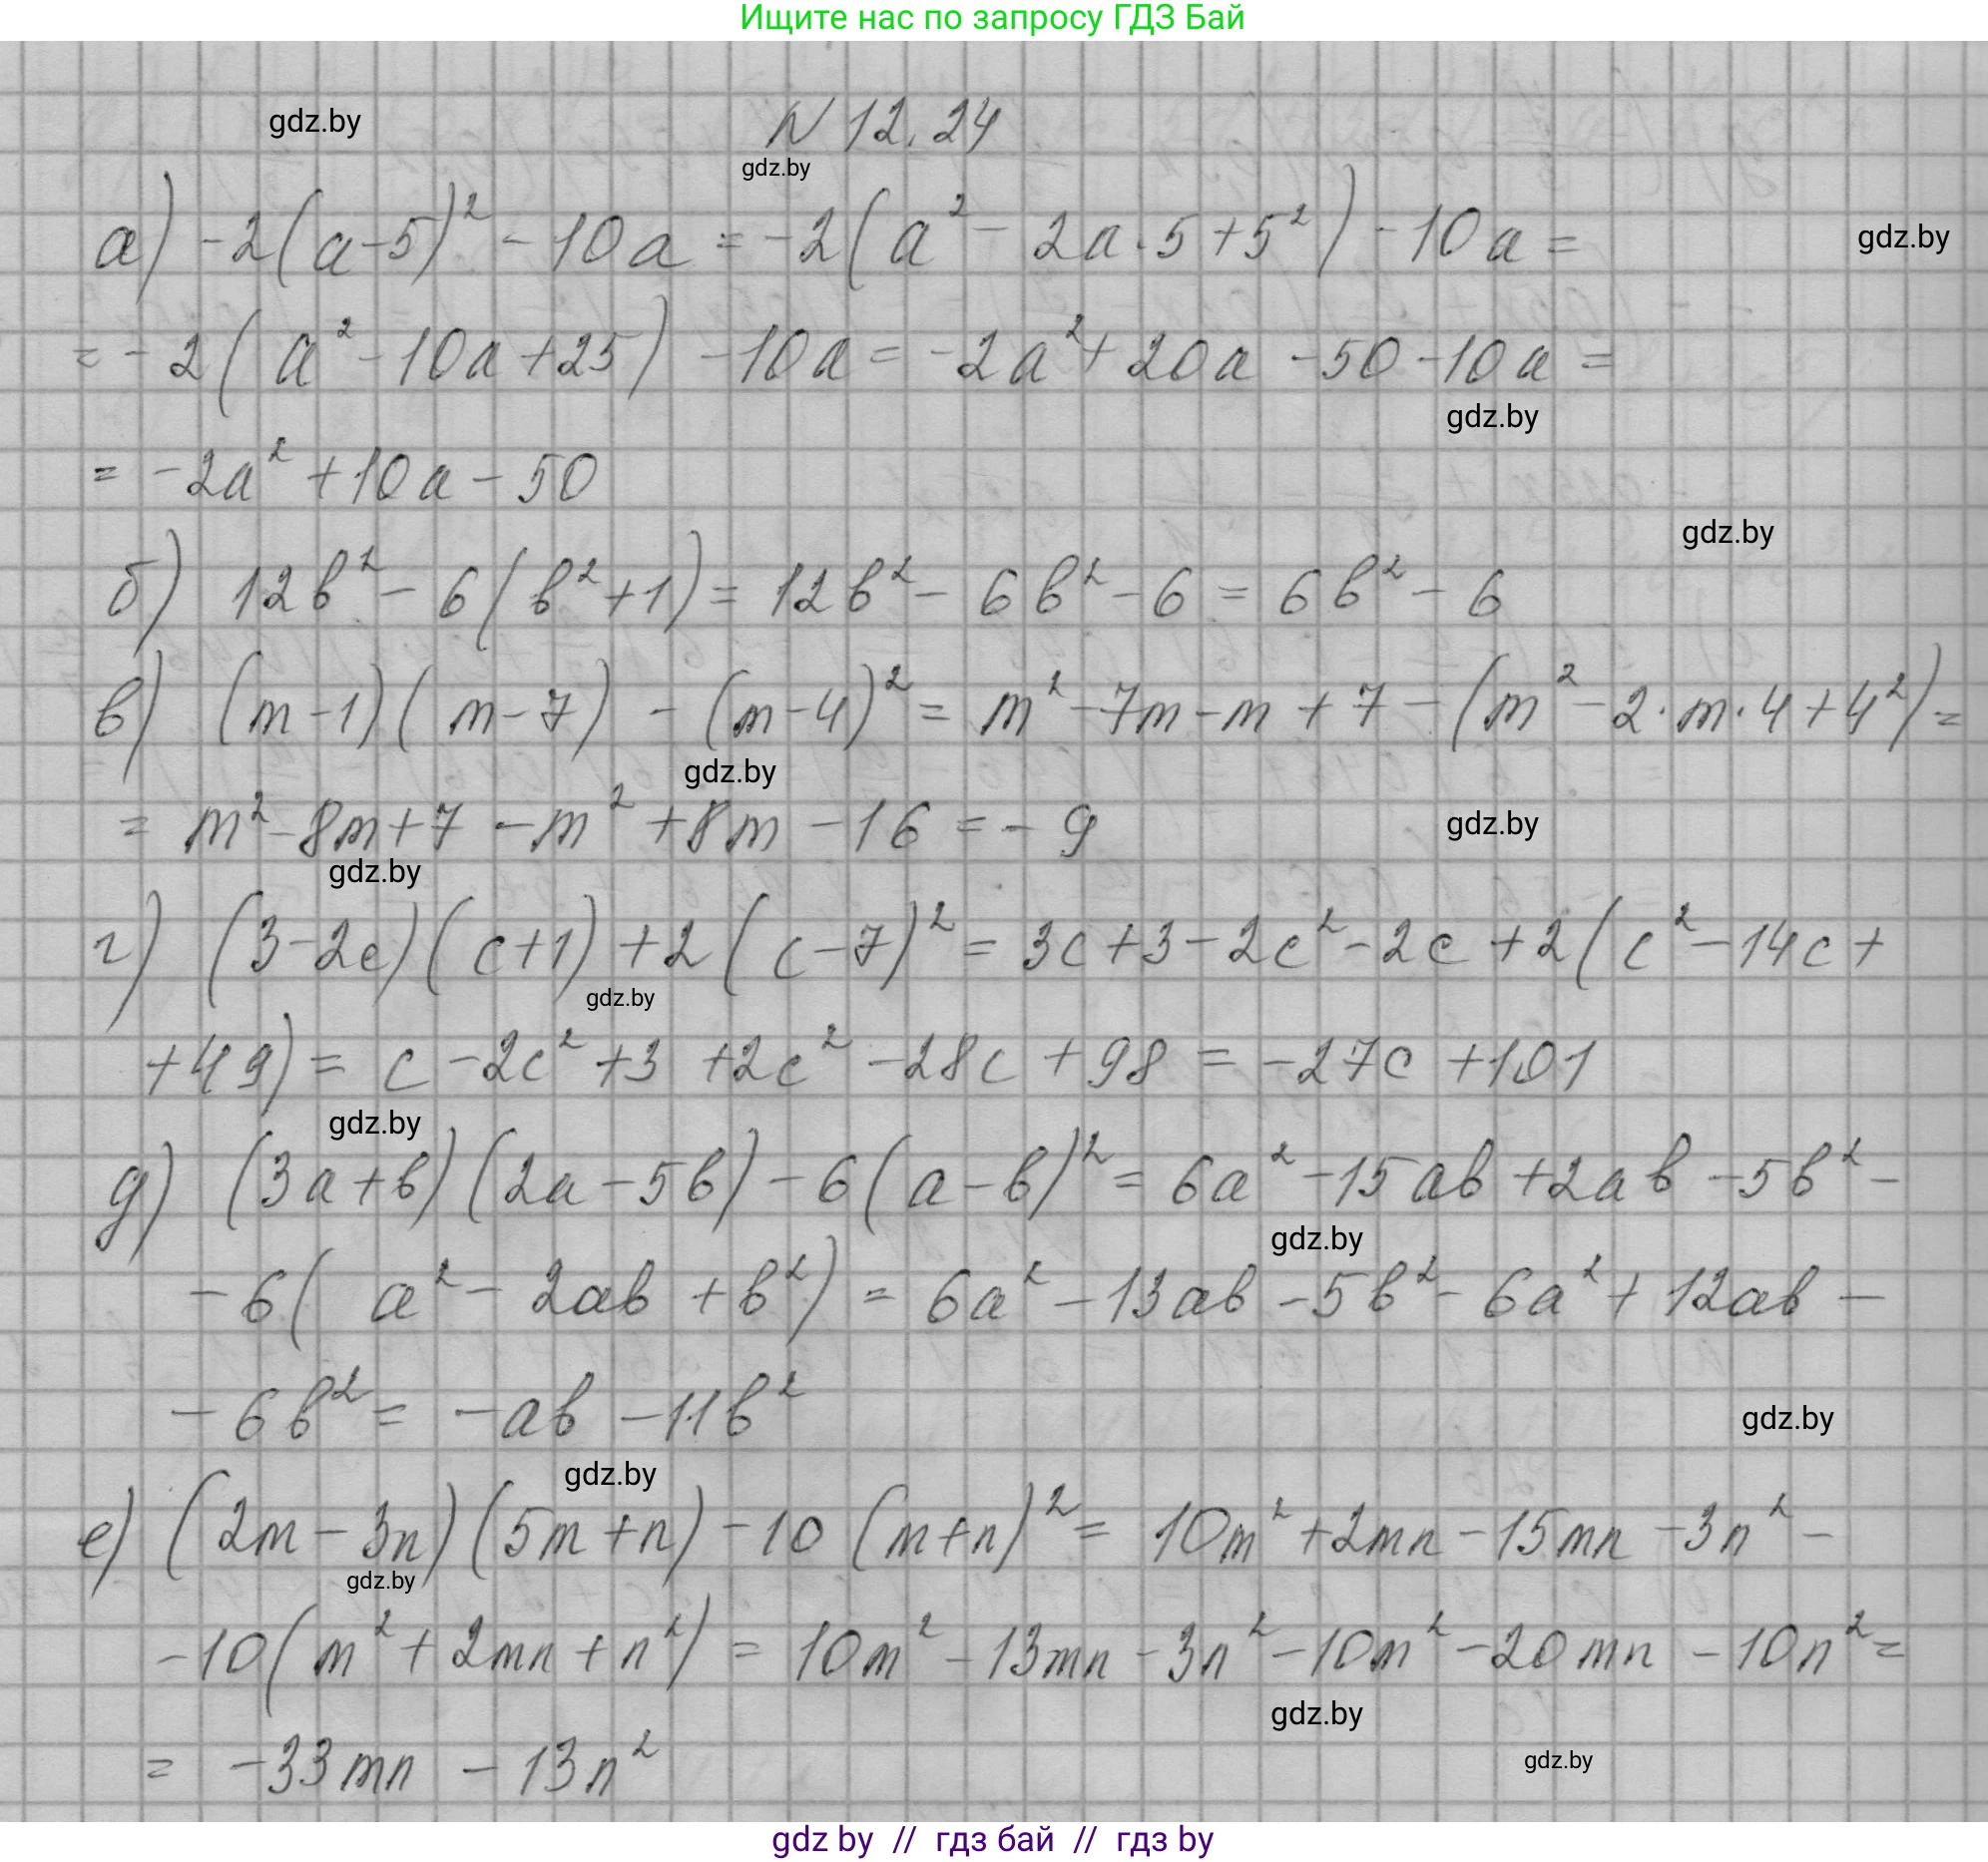 Ищите нас по запросу ГДЗ Бай
gdz.by
N 12.24
gdz.by
а) -2(a-5)² - 10a = -2(a² - 2a·5+5²) - 10a =
gdz.by
= -2(a² - 10a + 25) - 10a = -2a² + 20a - 50 - 10a =
gdz.by
= -2a² + 10a - 50
gdz.by
б) 12b² - 6(b²+1) = 12b² - 6b² - 6 = 6b² - 6
в) (m-1)(m-7) - (m-4)² = m² - 7m - m + 7 - (m² - 2·m·4+4²) =
gdz.by
= m² - 8m + 7 - m² + 8m - 16 = - 9
gdz.by
gdz.by
г) (3-2c)(c+1) + 2(c-7)² = 3c + 3 - 2c² - 2c + 2(c² - 14c +
gdz.by
+49) = c - 2c² + 3 + 2c² - 28c + 98 = -27c + 101
gdz.by
д) (3a+b)(2a-5b) - 6(a-b)² = 6a² - 15ab + 2ab - 5b² -
gdz.by
-6(a² - 2ab + b²) = 6a² - 13ab - 5b² - 6a² + 12ab -
- 6b² = -ab - 11b²
gdz.by
gdz.by
е) (2m-3n)(5m+n) - 10(m+n)² = 10m² + 2mn - 15mn - 3n² -
gdz.by
-10(m² + 2mn + n²) = 10m² - 13mn - 3n² - 10m² - 20mn - 10n² =
gdz.by
= -33mn - 13n²
gdz.by
gdz by // гдз бай // гдз by